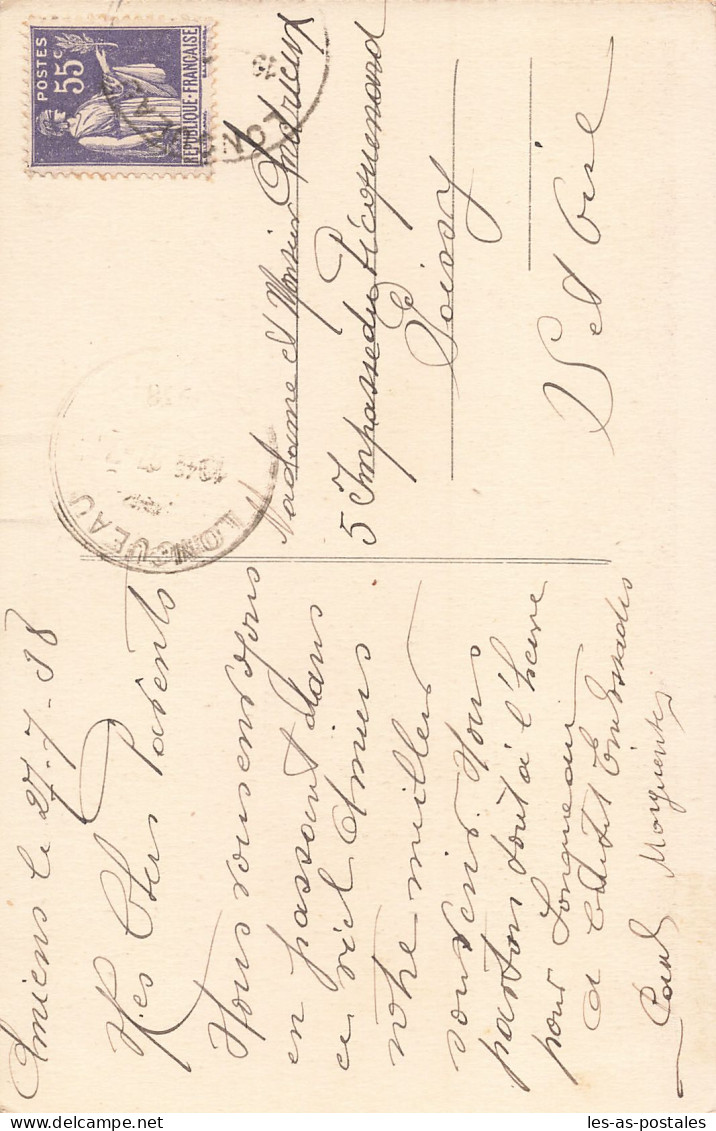 Amiens le 27-7-38
Mes Chers Parents
Nous vous envoyons
en passant dans
ce vieil Amiens
notre meilleur
souvenir. Nous
partons tout à l'heure
pour Longueau
a Embrassades
Paul Marguerite
POSTES
55c
REPUBLIQUE-FRANÇAISE
LONGUEAU
Madame et Monsieur Andrieux
5 Impasse du Picquenard
Poissy
S et Oise
les-as-postales